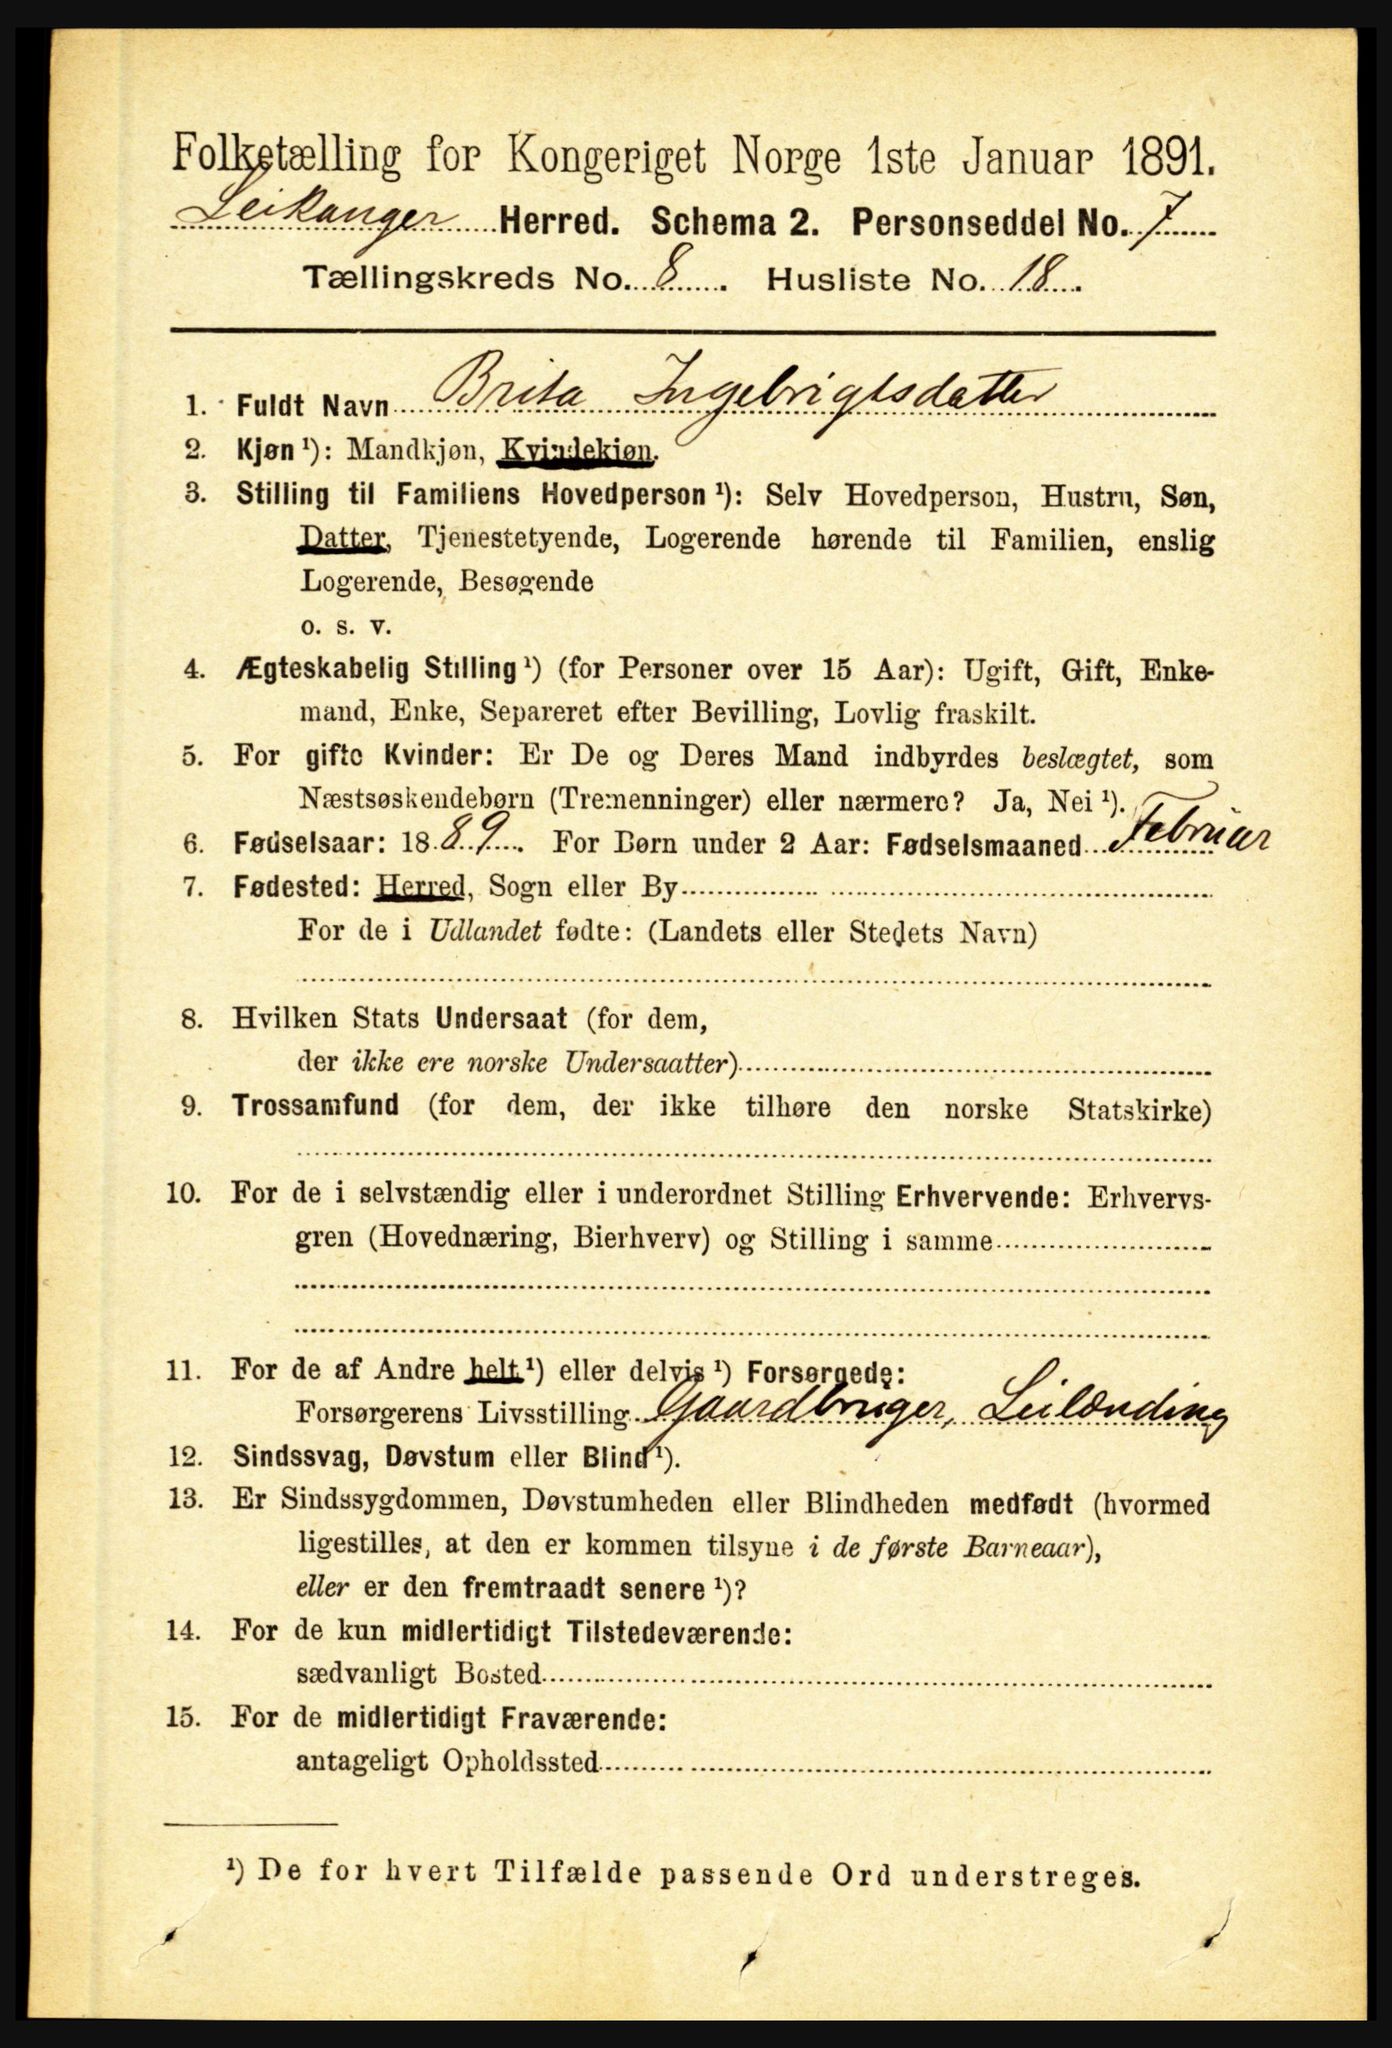 Folketælling for Kongeriget Norge 1ste Januar 1891.
Leikanger Herred. Schema 2. Personseddel No. 7
Tællingskreds No. 8. Husliste No. 18.
1. Fuldt Navn Brita Ingebrigtsdatter
2. Kjøn ¹): Mandkjøn, Kvindekjøn.
3. Stilling til Familiens Hovedperson ¹): Selv Hovedperson, Hustru, Søn,
Datter, Tjenestetyende, Logerende hørende til Familien, enslig
Logerende, Besøgende
o. s. v.
4. Ægteskabelig Stilling ¹) (for Personer over 15 Aar): Ugift, Gift, Enke-
mand, Enke, Separeret efter Bevilling, Lovlig fraskilt.
5. For gifte Kvinder: Er De og Deres Mand indbyrdes beslægtet, som
Næstsøskendebørn (Tremenninger) eller nærmere? Ja, Nei ¹).
6. Fødselsaar: 1889. For Børn under 2 Aar: Fødselsmaaned Februar
7. Fødested: Herred, Sogn eller By
For de i Udlandet fødte: (Landets eller Stedets Navn)
8. Hvilken Stats Undersaat (for dem,
der ikke ere norske Undersaatter)
9. Trossamfund (for dem, der ikke tilhøre den norske Statskirke)
10. For de i selvstændig eller i underordnet Stilling Erhvervende: Erhvervs-
gren (Hovednæring, Bierhverv) og Stilling i samme
11. For de af Andre helt ¹) eller delvis ¹) Forsørgede:
Forsørgerens Livsstilling Gaardbruger, Leilænding
12. Sindssvag, Døvstum eller Blind ¹).
13. Er Sindssygdommen, Døvstumheden eller Blindheden medfødt (hvormed
ligestilles, at den er kommen tilsyne i de første Barneaar),
eller er den fremtraadt senere ¹)?
14. For de kun midlertidigt Tilstedeværende:
sædvanligt Bosted
15. For de midlertidigt Fraværende:
antageligt Opholdssted
¹) De for hvert Tilfælde passende Ord understreges.